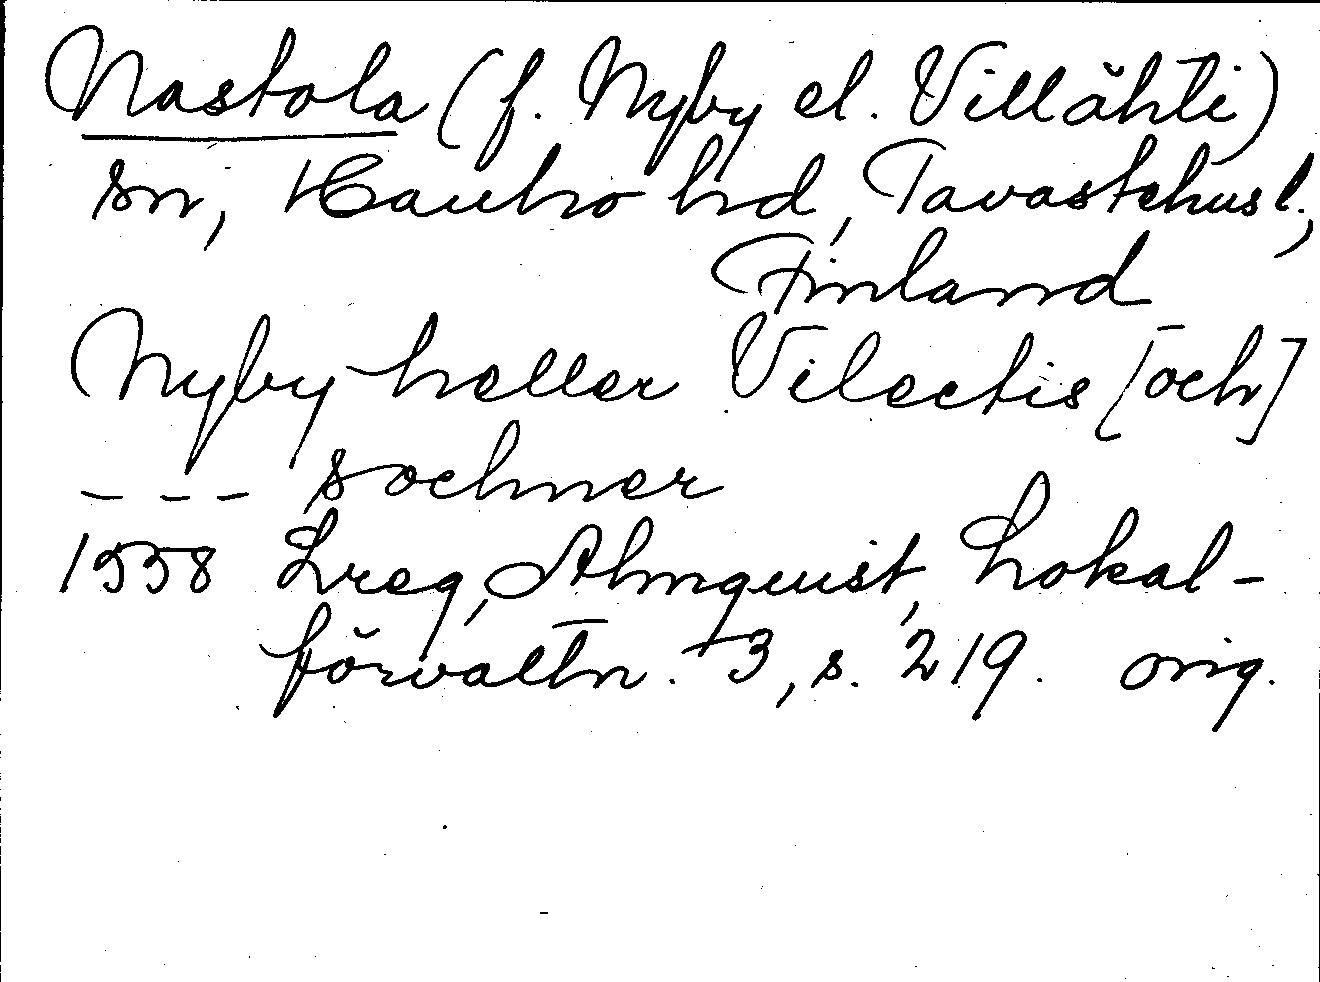 Nastola (f. Nyby el. Villähti)
sn, Hauho hd, Tavastehus l.,
Finland
Nyby heller Vilectis [och]
--- sochner
1558 Lreg, Almquist, Lokal-
förvaltn. 3, s. 219. orig.